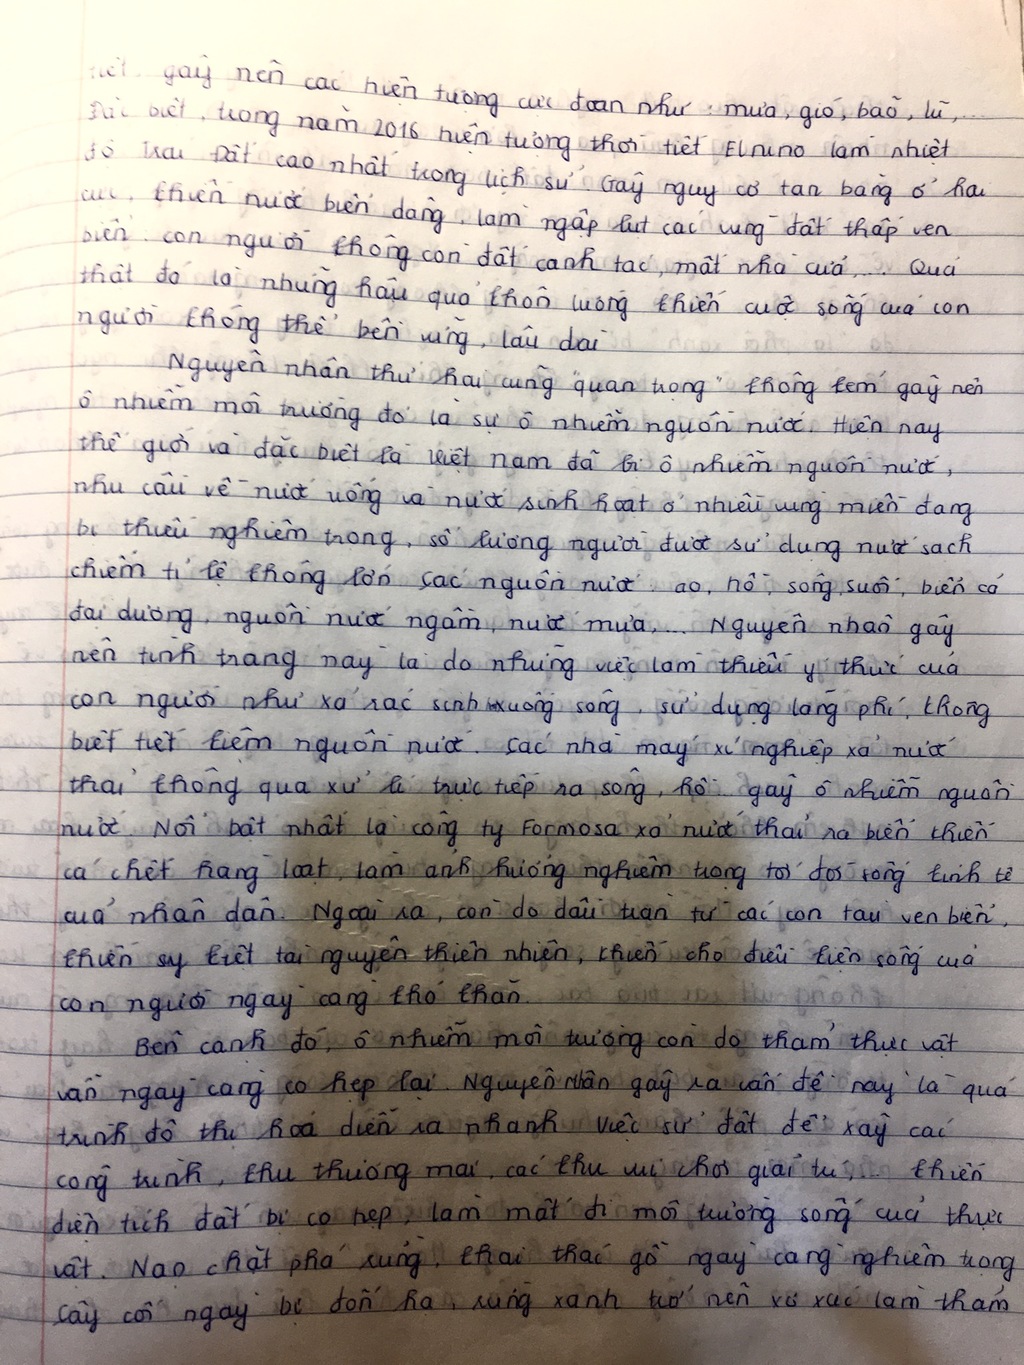 tiết gây nên các hiện tượng cực đoan như: mưa, gió, bão, lũ,...
Đặc biệt, trong năm 2016 hiện tượng thời tiết Elnino làm nhiệt
độ Trái Đất cao nhất trong lịch sử. Gây nguy cơ tan băng ở hai
cực, khiến nước biển dâng, làm ngập lụt các vùng đất thấp ven
biển. con người không còn đất canh tác, mất nhà cửa,... Quả
thật đó là những hậu quả khôn lường khiến cuộc sống của con
người không thể bền vững, lâu dài
Nguyên nhân thứ hai cũng "quan trọng" không kém gây nên
ô nhiễm môi trường đó là sự ô nhiễm nguồn nước. Hiện nay
thế giới và đặc biệt là Việt nam đã bị ô nhiễm nguồn nước,
nhu cầu về nước uống và nước sinh hoạt ở nhiều vùng miền đang
bị thiếu nghiêm trọng, số lượng người được sử dụng nước sạch
chiếm tỉ lệ không lớn. Các nguồn nước: ao, hồ, sông, suối, biển cả
đại dương, nguồn nước ngầm, nước mưa,... Nguyên nhân gây
nên tình trạng này là do những việc làm thiếu ý thức của
con người như xả rác sinh xuống sông, sử dụng lãng phí, không
biết tiết kiệm nguồn nước. Các nhà máy xí nghiệp xả nước
thải không qua xử lí trực tiếp ra sông, hồ.. gây ô nhiễm nguồn
nước. Nổi bật nhất là công ty Formosa xả nước thải ra biển khiến
cá chết hàng loạt, làm ảnh hưởng nghiêm trọng tới đời sống kinh tế
của nhân dân. Ngoài ra, còn do dầu tràn từ các con tàu ven biển,
khiến suy kiệt tài nguyên thiên nhiên, khiến cho điều kiện sống của
con người ngày càng khó khăn.
Bên cạnh đó, ô nhiễm môi trường còn do thảm thực vật
vẫn ngày càng co hẹp lại. Nguyên nhân gây ra vấn đề này là quá
trình đô thị hoá diễn ra nhanh. Việc sử đất để xây các
công trình, khu thương mại, các khu vui chơi giải trí,... khiến
diện tích đất bị co hẹp, làm mất đi môi trường sống của thực
vật. Nạn chặt phá rừng, khai thác gỗ ngày càng nghiêm trọng
Cây cối ngày bị đốn hạ, rừng xanh trở nên xơ xác làm thảm